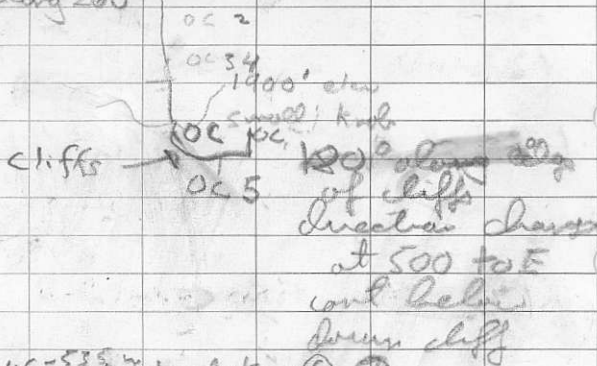 OC 2
OC 34
1900' elev
small knob
OC OC
cliffs
120° along edge
OC 5
of cliffs
direction changes
at 500 to E
cont below
down cliff